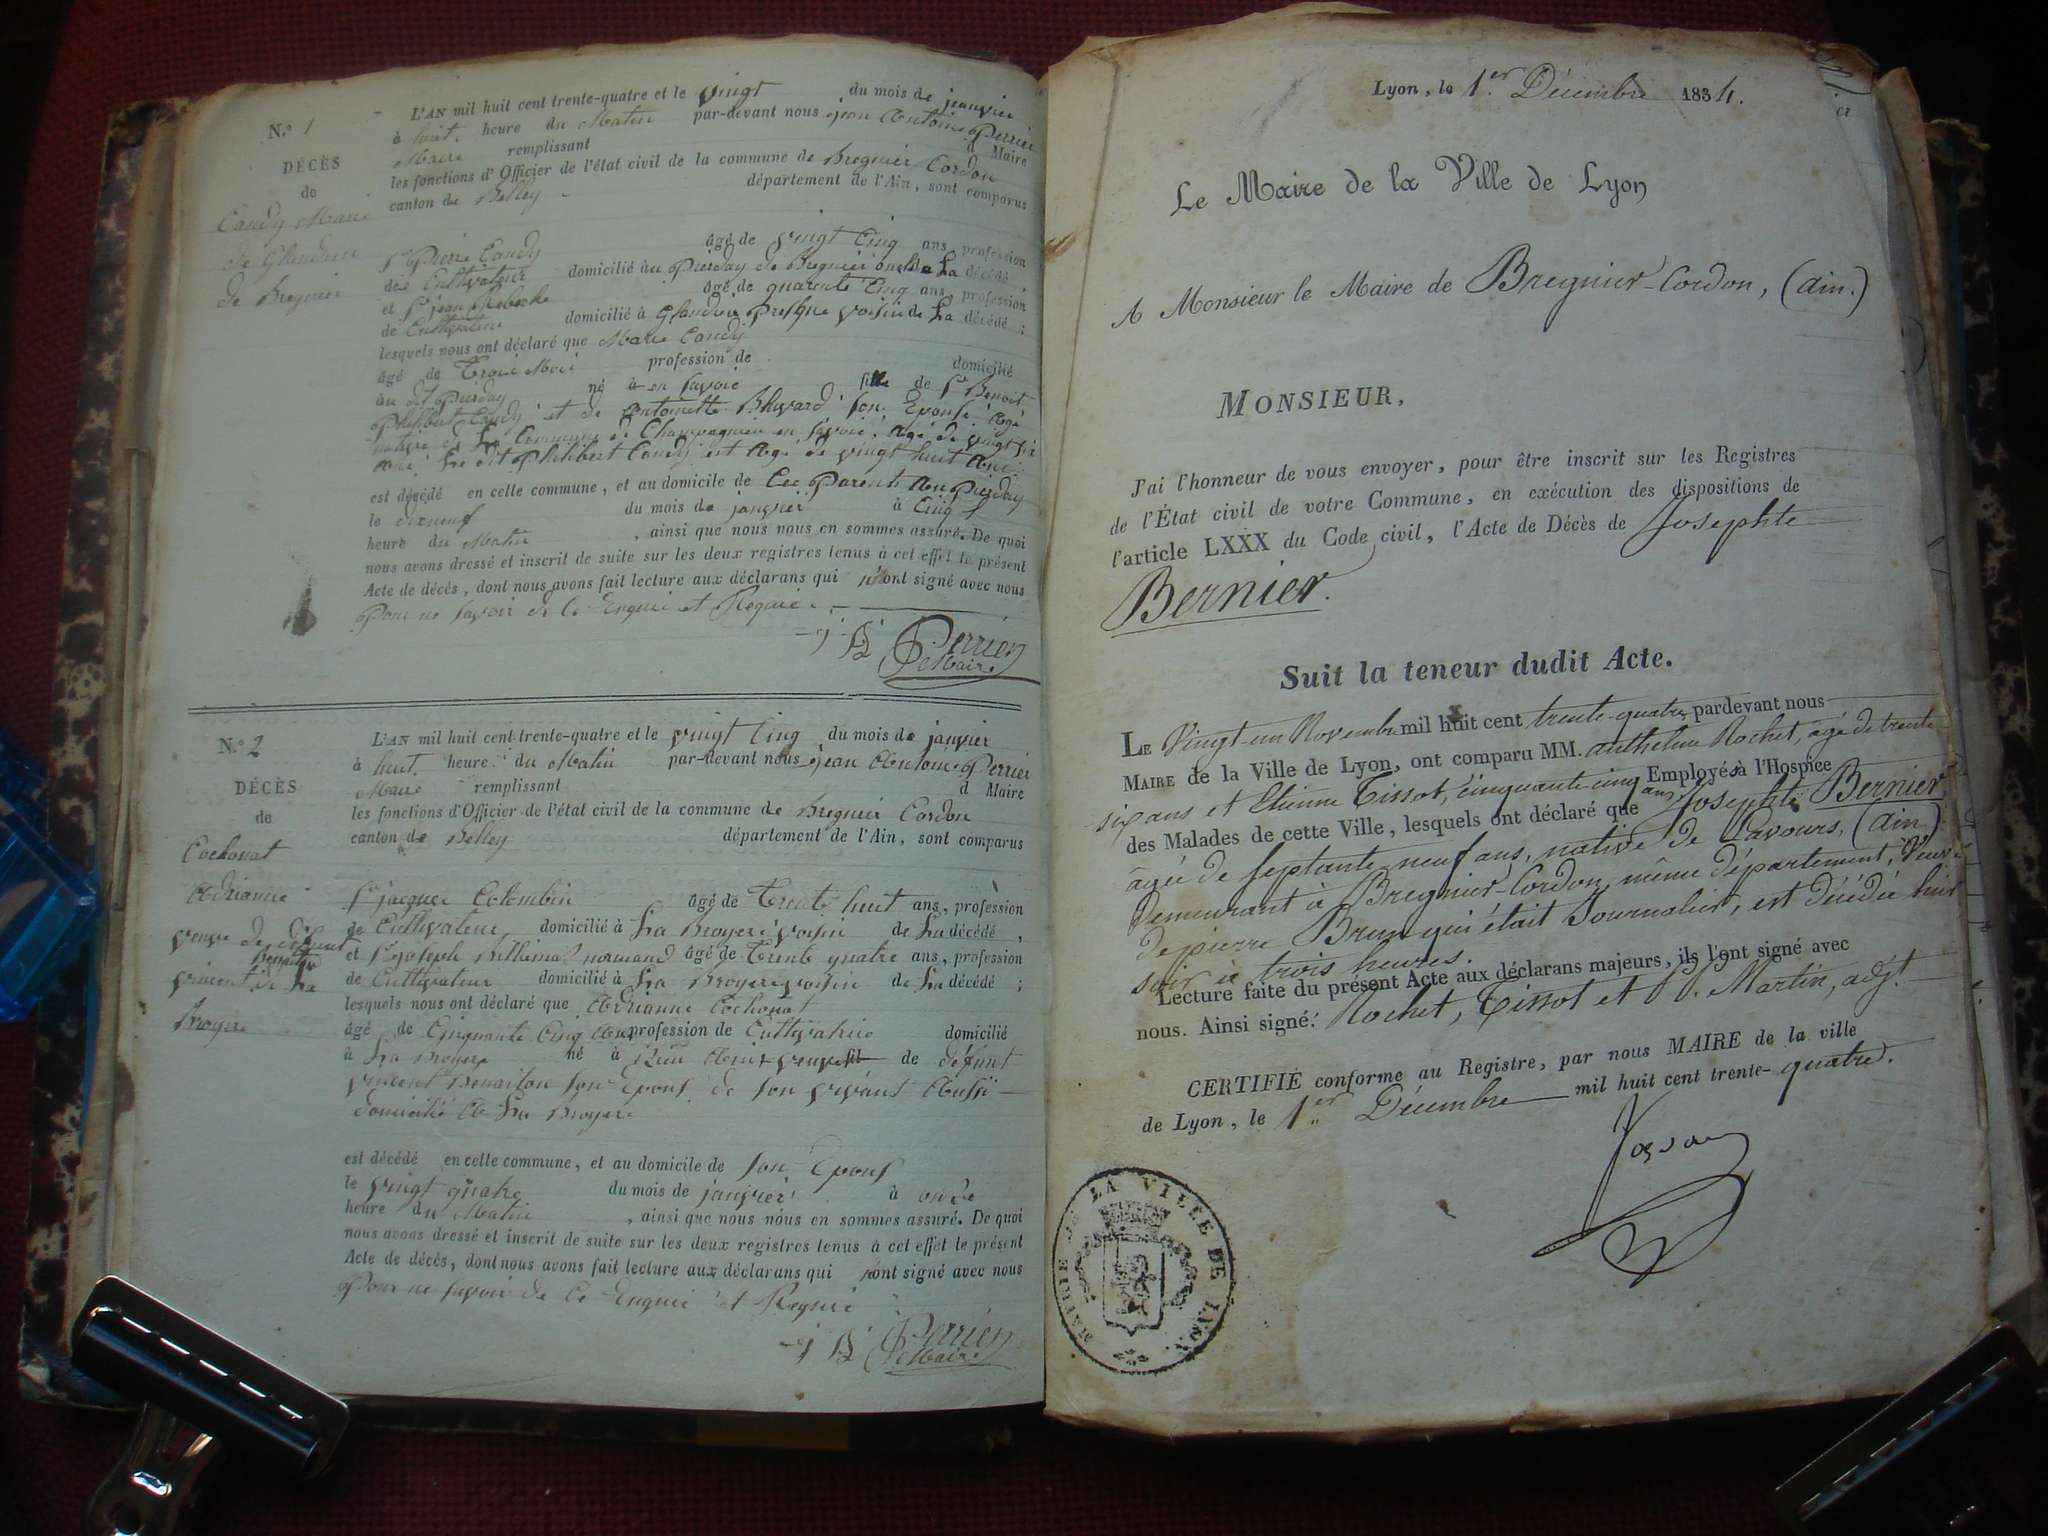 N.º 1
DÉCÈS
de
Candy Marie
de Glandieu
de Bregnier
L'AN mil huit cent trente-quatre et le vingt du mois de janvier
à huit heure du Matin par-devant nous jean Antoine Perrier
Maire remplissant d Maire
les fonctions d'Officier de l'état civil de la commune de Bregnier Cordon
canton de Belley département de l'Ain, sont comparus
Sr Pierre Candy âgé de vingt Cinq ans, profession
de Cultivateur domicilié au Pierday de Bregnier oncle de La décédé,
et Sr jean Reboche âgé de quarente Cinq ans, profession
de Cultivateur domicilié à Glandieu Presque voisin de La décédé ;
lesquels nous ont déclaré que Marie Candy
âgé de Trois Mois profession de domicilié
au dit Pierday né à en Savoie fille de Sr Benoit
Philibert Candy et de Antoinette son Epouse Agé
native de La Commune de Champagneu en Savoie, Agé de vingt
ans Le dit Philibert Candy est Agé de vingt huit Ans
est décédé en celle commune, et au domicile de Ces Parents Au Pierday
le dixneuf du mois de janvier à Cinq
heure du Matin, ainsi que nous nous en sommes assuré. De quoi
nous avons dressé et inscrit de suite sur les deux registres tenus à cet effet le présent
Acte de décès, dont nous avons fait lecture aux déclarans qui n'ont signé avec nous
Pour ne savoir de Ce Enquis et Requis.
Perrier
Maire
N.º 2
DÉCÈS
de
Cochonat
Adrianne
veuve de défunt
Benaiton
vincent de La
Broyere
L'AN mil huit cent trente-quatre et le vingt Cinq du mois de janvier
à huit heure du Matin par-devant nous jean Antoine Perrier
Maire remplissant d Maire
les fonctions d'Officier de l'état civil de la commune de Bregnier Cordon
canton de Belley département de l'Ain, sont comparus
Sr jacque Colombin âgé de Trente huit ans, profession
de Cultivateur domicilié à La Broyere voisin de La décédé,
et Sr joseph Billiemaz normand âgé de Trente quatre ans, profession
de Cultivateur domicilié à La Broyere voisin de La décédé ;
lesquels nous ont déclaré que Adrianne Cochonat
âgé de Cinquante Cinq Ans profession de Cultivatrice domicilié
à La Broyere né à veuve de défunt
vincent Benaiton son Epous de son vivant Aussi
domicilié A La Broyere
est décédé en celle commune, et au domicile de son Epous
le vingt quatre du mois de janvier à onze
heure du Matin, ainsi que nous nous en sommes assuré. De quoi
nous avons dressé et inscrit de suite sur les deux registres tenus à cet effet le présent
Acte de décès, dont nous avons fait lecture aux déclarans qui n'ont signé avec nous
Pour ne savoir de Ce Enquis et Requis
Perrier
Maire
Lyon, le 1.er Décembre 1834.
Le Maire de la Ville de Lyon
A Monsieur le Maire de Bregnier-Cordon, (Ain.)
MONSIEUR,
J'ai l'honneur de vous envoyer, pour être inscrit sur les Registres
de l'État civil de votre Commune, en exécution des dispositions de
l'article LXXX du Code civil, l'Acte de Décès de Josephte
Bernier.
Suit la teneur dudit Acte.
LE Vingt-un Novembre mil huit cent trente-quatre, pardevant nous
MAIRE de la Ville de Lyon, ont comparu MM. Anthelme Rochet, âgé de trente
six ans et Etienne Tissot, cinquante-cinq ans Employés à l'Hospice
des Malades de cette Ville, lesquels ont déclaré que Josephte Bernier,
âgée de septante neuf ans, native de Lavours, (Ain)
demeurant à Bregnier-Cordon, même département, Veuve
de pierre Brun qui était Journalier, est décédée hier
soir à trois heures.
Lecture faite du présent Acte aux déclarans majeurs, ils l'ont signé avec
nous. Ainsi signé: Rochet, Tissot et Martin, adj.t
CERTIFIÉ conforme au Registre, par nous MAIRE de la ville
de Lyon, le 1.er Décembre mil huit cent trente-quatre.
MAIRIE DE LA VILLE DE LYON